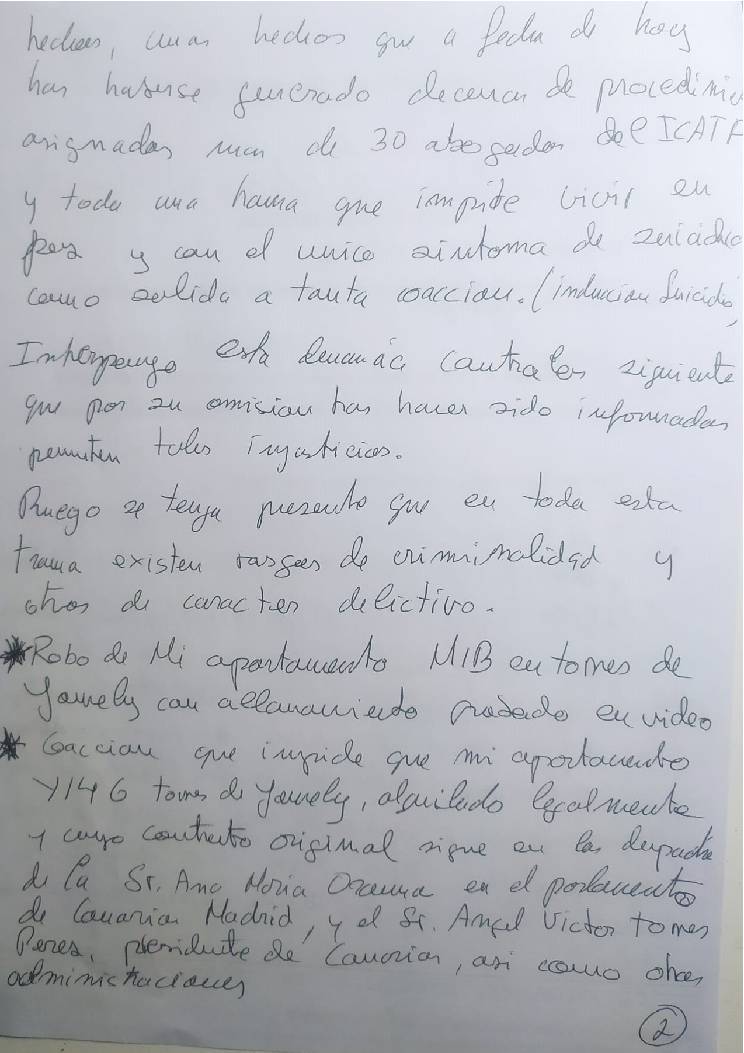 hechos, unos hechos que a fecha de hoy
han haverse generado decenas de procedimie
asignados mas de 30 abogados del ICATF
y toda una trama que impide vivir en
paz y con el unico sintoma de suicidio
como salida a tanta coaccion. (induccion Suicidio,
Interpongo esta denuncia contra los siguiente
que por su omision tras haver sido informados
permiten tales injusticias.
Ruego se tenga presente que en toda esta
trama existen rasgos de criminalidad y
otros de caracter delictivo.
* Robo de Mi apartamento M1B en torres de
Yomely con allanamiento grabado en video
* Coaccion que impide que mi apartamento
Y146 torres de Yomely, alquilado legalmente
y cuyo contrato original sigue en los despacho
de la Sr. Ana Maria Oramas en el parlamento
de Canarias Madrid, y el Sr. Angel Victor torres
Peres, presidente de Canarias, asi como otras
administraciones
2